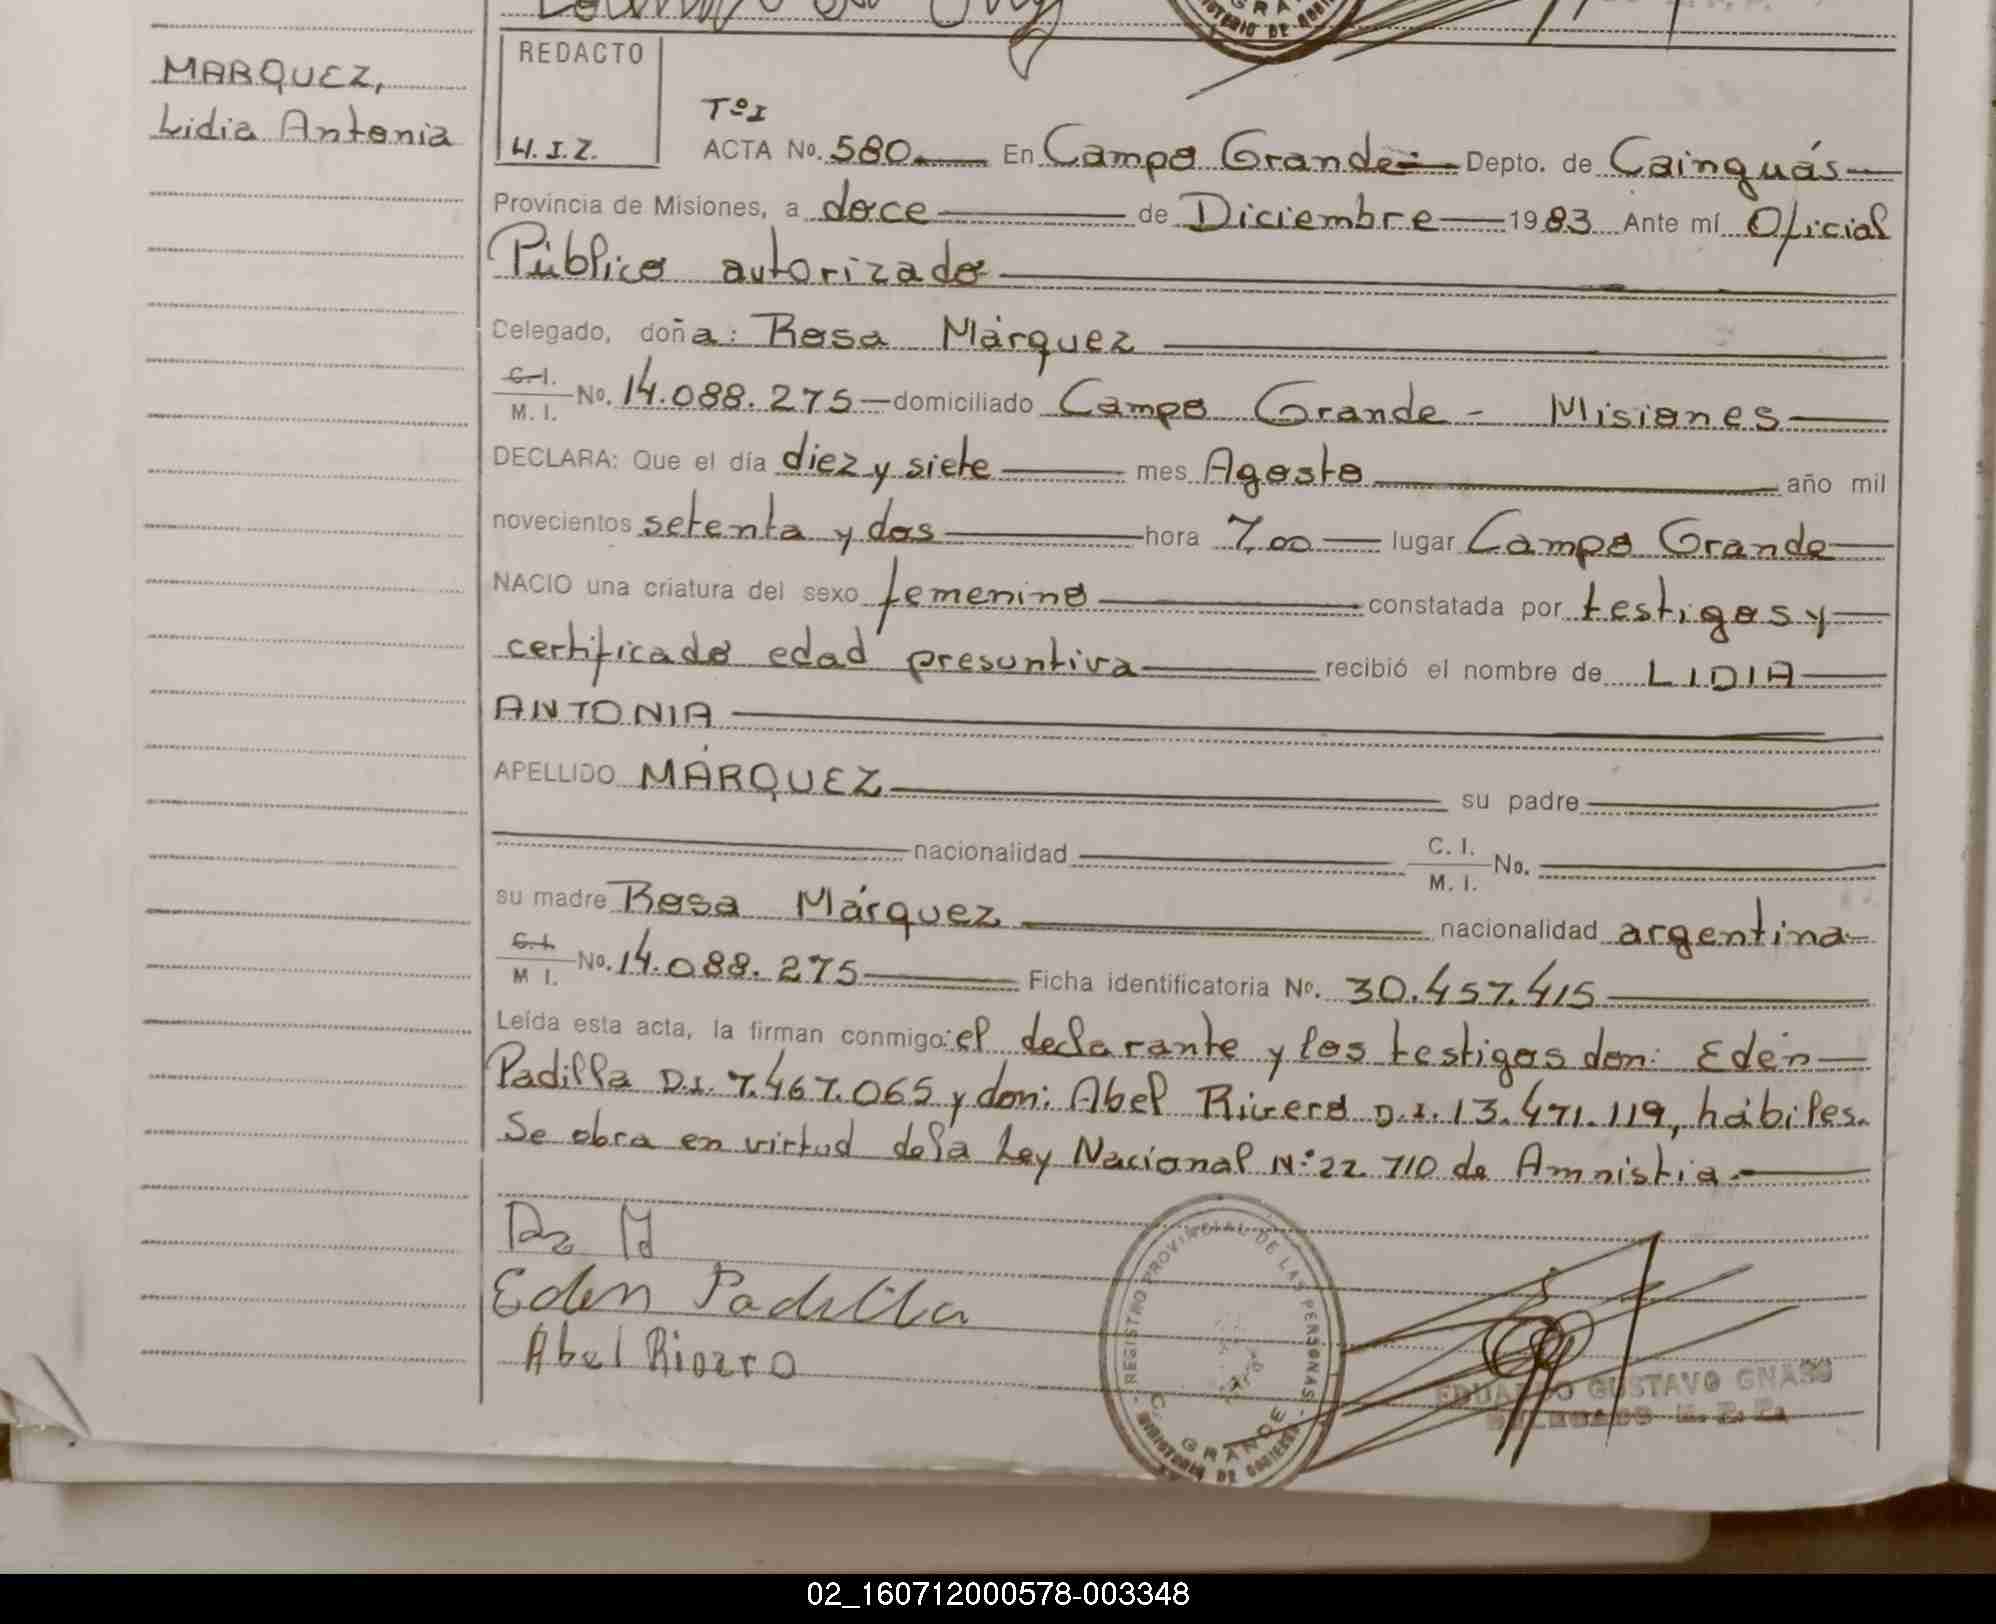 MARQUEZ,
Lidia Antonia
REDACTO
H.I.Z.
Tº I
ACTA No. 580. En Campo Grande Depto. de Cainguás
Provincia de Misiones, a doce de Diciembre 1983 Ante mí Oficial
Público autorizado
Delegado, doña: Rosa Márquez
C.I. / M.I. No. 14.088.275 domiciliado Campo Grande - Misiones
DECLARA: Que el día diez y siete mes Agosto año mil
novecientos setenta y dos hora 7,00 lugar Campo Grande
NACIO una criatura del sexo femenino constatada por testigos y
certificado edad presuntiva recibió el nombre de LIDIA
ANTONIA
APELLIDO MÁRQUEZ su padre
nacionalidad C. I. / M. I. No.
su madre Rosa Márquez nacionalidad argentina
C.I. / M I. No. 14.088.275 Ficha identificatoria No. 30.457.415
Leída esta acta, la firman conmigo: el declarante y los testigos don: Edén
Padilla D.I. 7.467.065 y don: Abel Rivero D.I. 13.471.119, hábiles.
Se obra en virtud de la Ley Nacional Nº 22.710 de Amnistia.
Eden Padilla
Abel Rivero
REGISTRO PROVINCIAL DE LAS PERSONAS
C. GRANDE
MINISTERIO DE GOBIERNO
EDUARDO GUSTAVO GNASS
DELEGADO R. P. P.
02_160712000578-003348